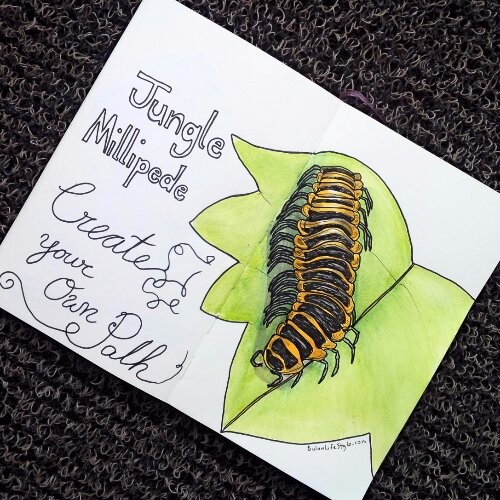 Jungle
Millipede
Create
your
Own Path
BulanLifestyle.com